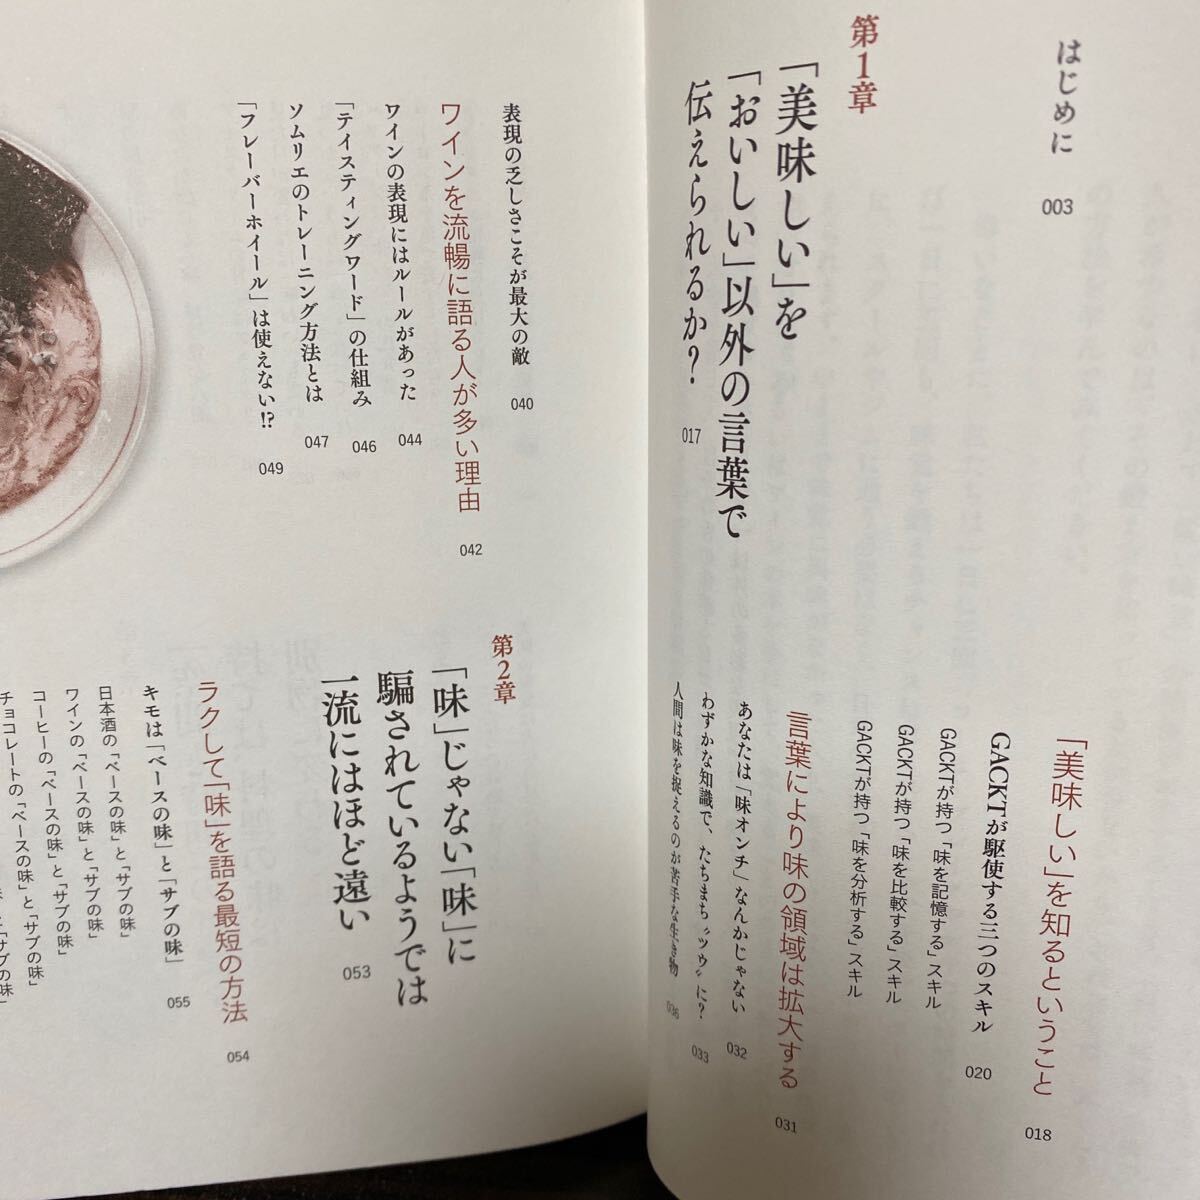 はじめに
003
第1章
「美味しい」を
「おいしい」以外の言葉で
伝えられるか?
017
「美味しい」を知るということ
018
GACKTが駆使する三つのスキル
020
GACKTが持つ「味を記憶する」スキル
GACKTが持つ「味を比較する」スキル
GACKTが持つ「味を分析する」スキル
言葉により味の領域は拡大する
031
あなたは「味オンチ」なんかじゃない
032
わずかな知識で、たちまち〝ツウ〟に?
033
人間は味を捉えるのが苦手な生き物
036
表現の乏しさこそが最大の敵
040
ワインを流暢に語る人が多い理由
042
ワインの表現にはルールがあった
044
「テイスティングワード」の仕組み
046
ソムリエのトレーニング方法とは
047
「フレーバーホイール」は使えない!?
049
第2章
「味」じゃない「味」に
騙されているようでは
一流にはほど遠い
053
ラクして「味」を語る最短の方法
054
キモは「ベースの味」と「サブの味」
055
日本酒の「ベースの味」と「サブの味」
ワインの「ベースの味」と「サブの味」
コーヒーの「ベースの味」と「サブの味」
チョコレートの「ベースの味」と「サブの味」